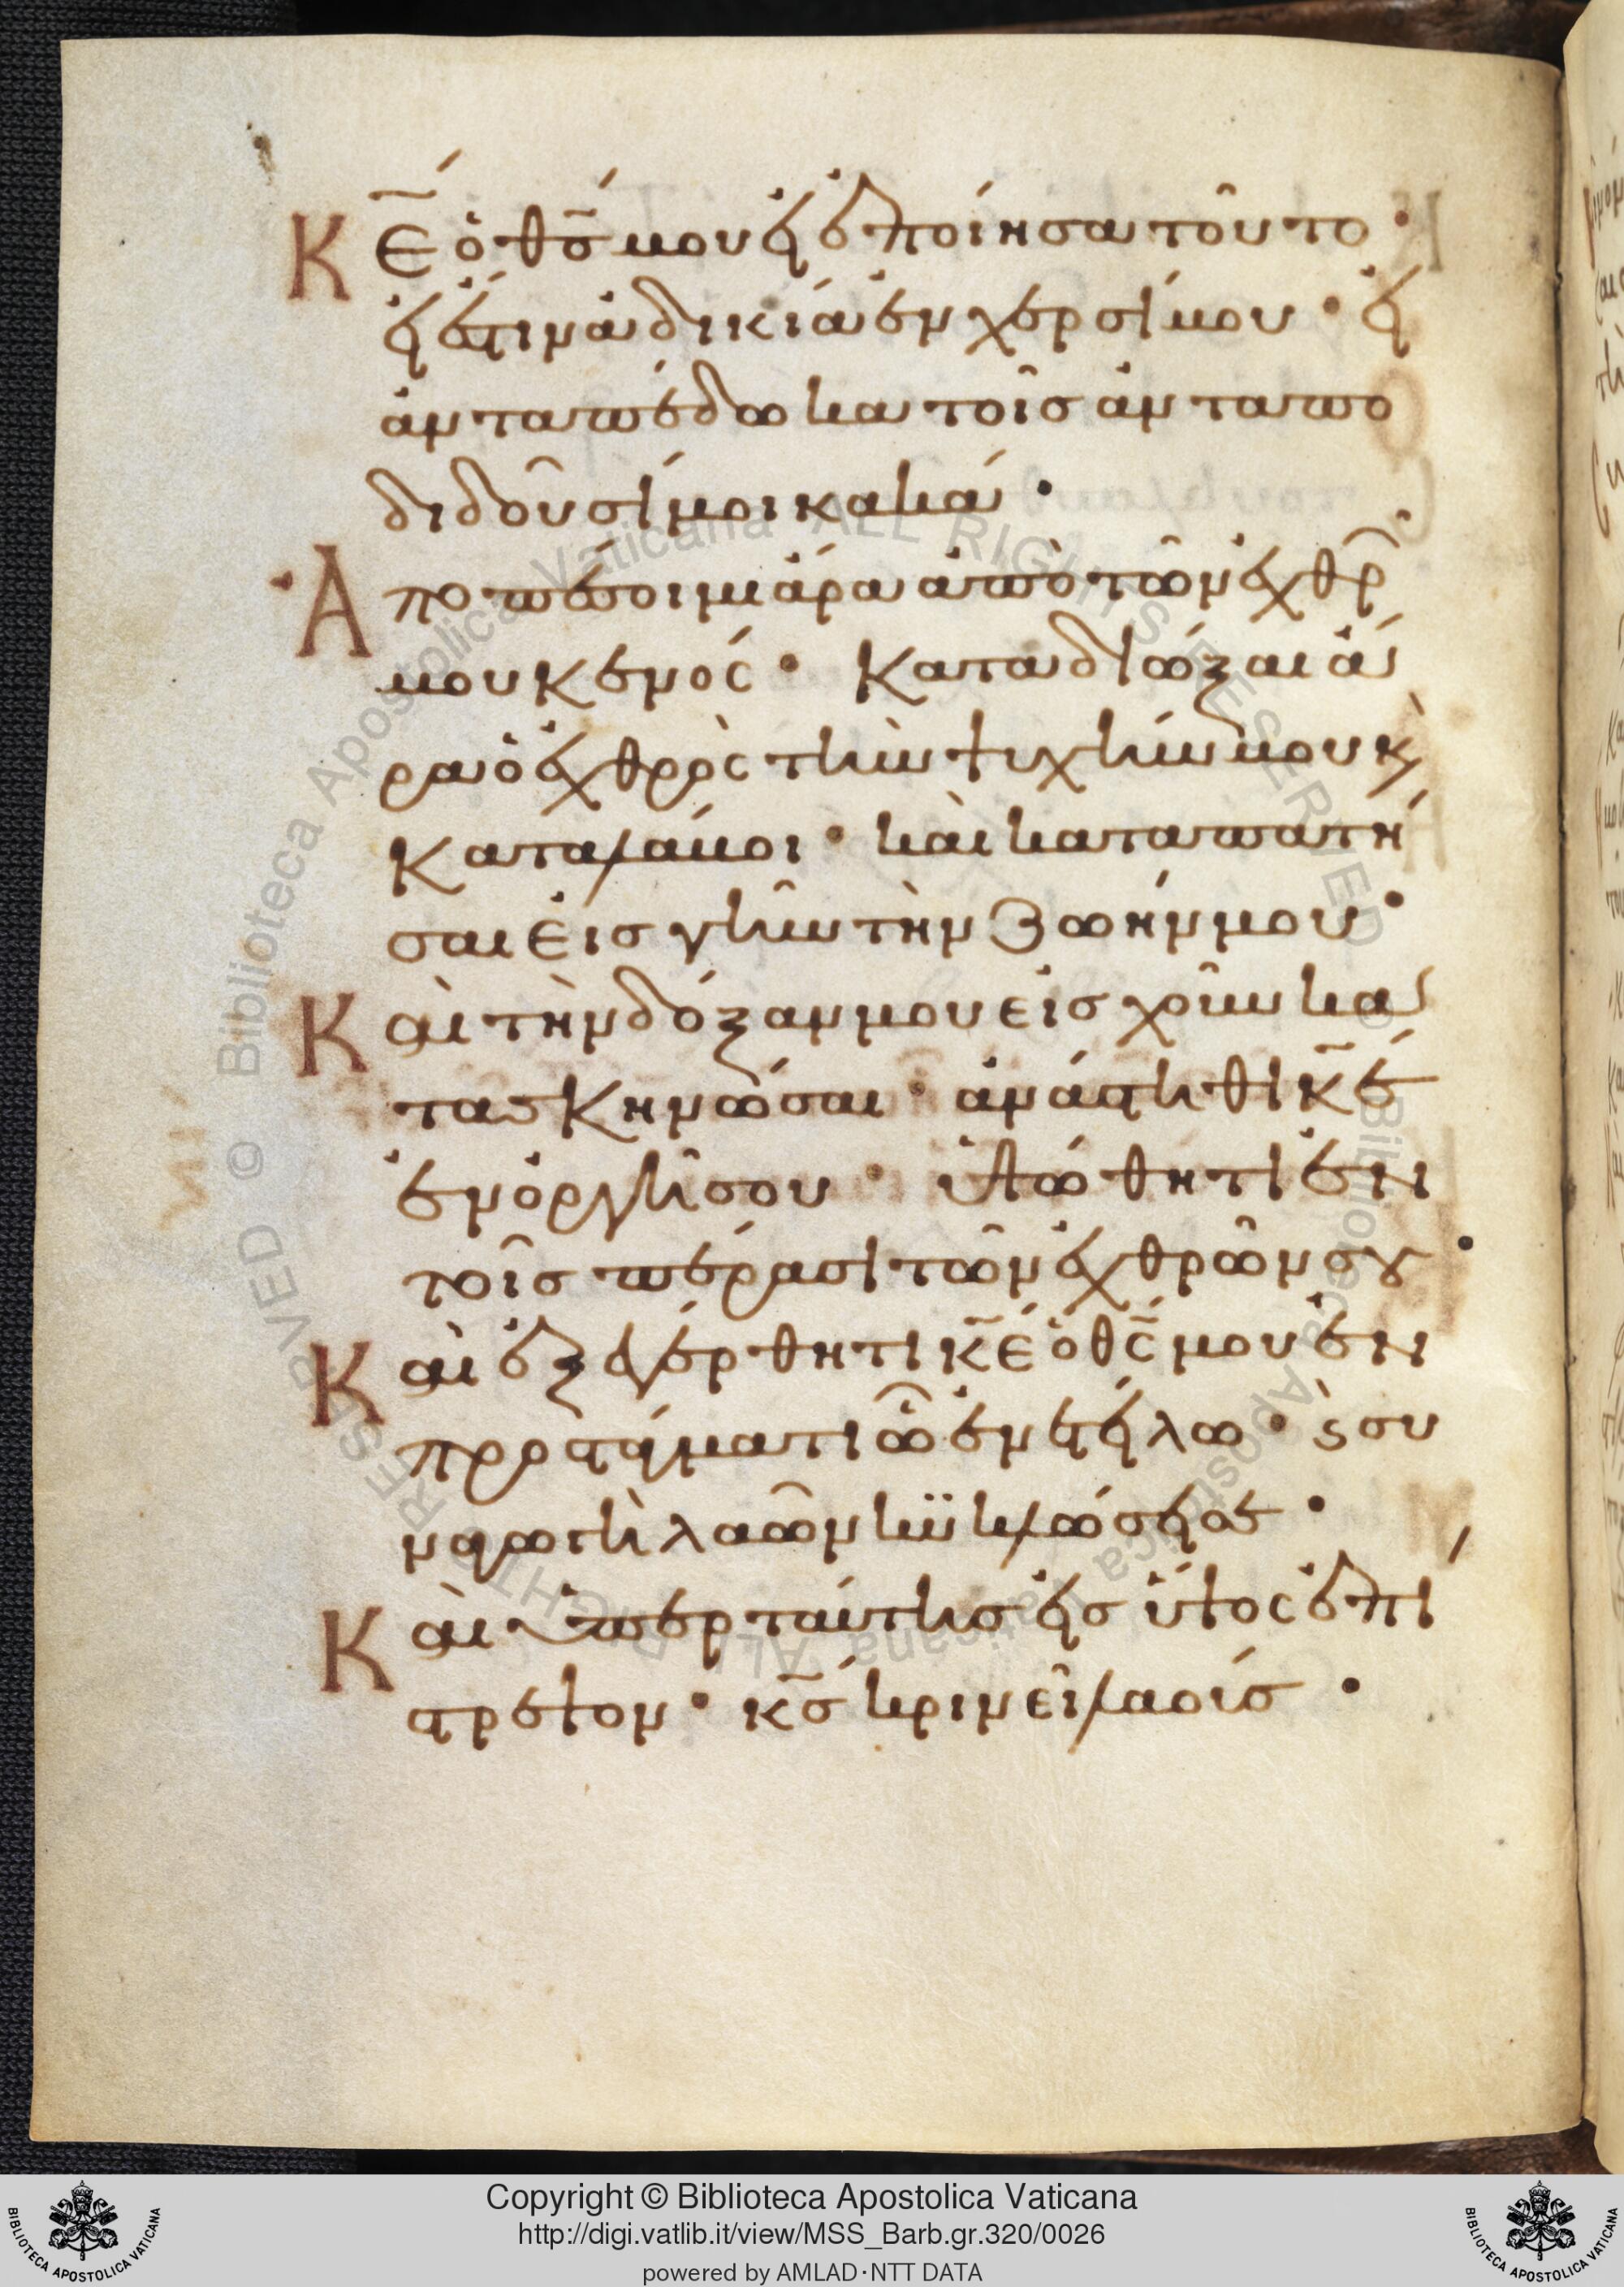 Κε̅ ὁ θσ̅ μου εἰ ἐποίησα τοῦτο ·
εἰ ἔστιν ἀδικία ἐν χερσί μου · εἰ
ἀνταπέδωκα τοῖσ ἀνταπο
διδοῦσί μοι κακά ·
Ἀποπέσοιμι ἄρα ἀπὸ τῶν ἐχθρῶ
μου κενός · καταδιώξαι ἄ
ρα ὁ ἐχθρὸς τὴν ψυχήν μου κ̀
καταλάβοι · καὶ καταπατή
σαι εἰσ γῆν τὴν ζωήν μου ·
Καὶ τὴν δόξαν μου εἰσ χοῦν κα
τασκηνώσαι · ἀνάστηθι κ̅ε
ἐν ὀργῆ σου · ὑψώθητι ἐν
τοῖσ πέρασι τῶν ἐχθρῶν σου ·
Καὶ ἐξεγέρθητι κ̅ε ὁ θς̅ μου ἐν
προστάγματι ὧ ἐνετείλω · ϛ συ
ναγωγὴ λαῶν κυκλώσει σε ·
Καὶ ὑπερ ταύτησ εἰσ ὕψος ἐπί
στρεψον · κσ̅ κρινεῖ λαούσ ·
Copyright © Biblioteca Apostolica Vaticana
http://digi.vatlib.it/view/MSS_Barb.gr.320/0026
powered by AMLAD·NTT DATA
BIBLIOTECA APOSTOLICA VATICANA
BIBLIOTECA APOSTOLICA VATICANA
© Biblioteca Apostolica Vaticana ALL RIGHTS RESERVED © Biblioteca Apostolica Vaticana ALL RIGHTS RESERVED